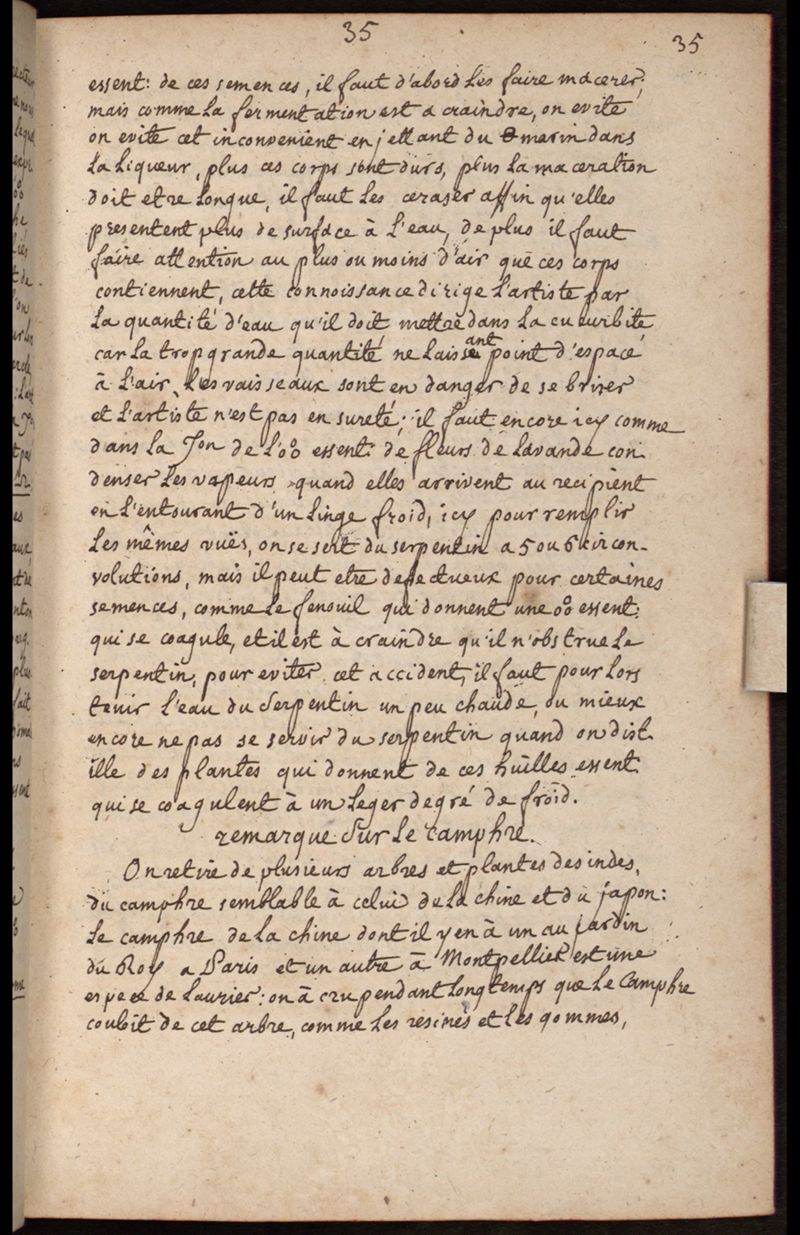 35
35
essent: de ces semences, il faut d'abord les faire macerer,
mais comme la fermentation est a craindre, on evite
on evite cet inconvenient en jettant du 🜔 marin dans
la liqueur, plus ces corps sont durs, plus la maceration
doit etre longue, il faut les ecraser affin qu'elles
presentent plus de surface à l'eau, de plus il faut
faire attention au plus ou moins d'air que ces corps
contiennent, cette connoissance dirige l'artiste par
la quantité d'eau qu'il doit mettre dans la cucurbite
car la trop grande quantité ne laissant point d'espace
à l'air, les vaisseaux sont en danger de se briser
et l'artiste n'est pas en sureté; il faut encore icy comme
dans la Jon de l'oo essent: de fleurs de lavande con
denser les vapeurs quand elles arrivent au recipient
en l'entourant d'un linge froid, icy pour remplir
les mêmes vuës, on se sert du serpentin a 5 ou 6 circon-
volutions, mais il peut etre defectueux pour certaines
semences, comme le fenouil qui donnent une oo essent:
qui se coagule, et il est à craindre qu'il n'obstrue le
serpentin, pour eviter cet accident, il faut pour lors
tenir l'eau du serpentin un peu chaude, ou mieux
encore ne pas se servir du serpentin quand on dist
ille des plantes qui donnent de ces huilles essent
qui se coagulent à un leger degré de froid.
remarque sur le camphre.
On retire de plusieurs arbres et plantes des indes,
du camphre semblable à celui de la chine et du japon:
le camphre de la chine dont il y en à un au jardin
du Roy a Paris et un autre à Montpellier est une
espece de laurier: on à cru pendant longtemps que le camphre
couloit de cet arbre, comme les resines et les gommes,